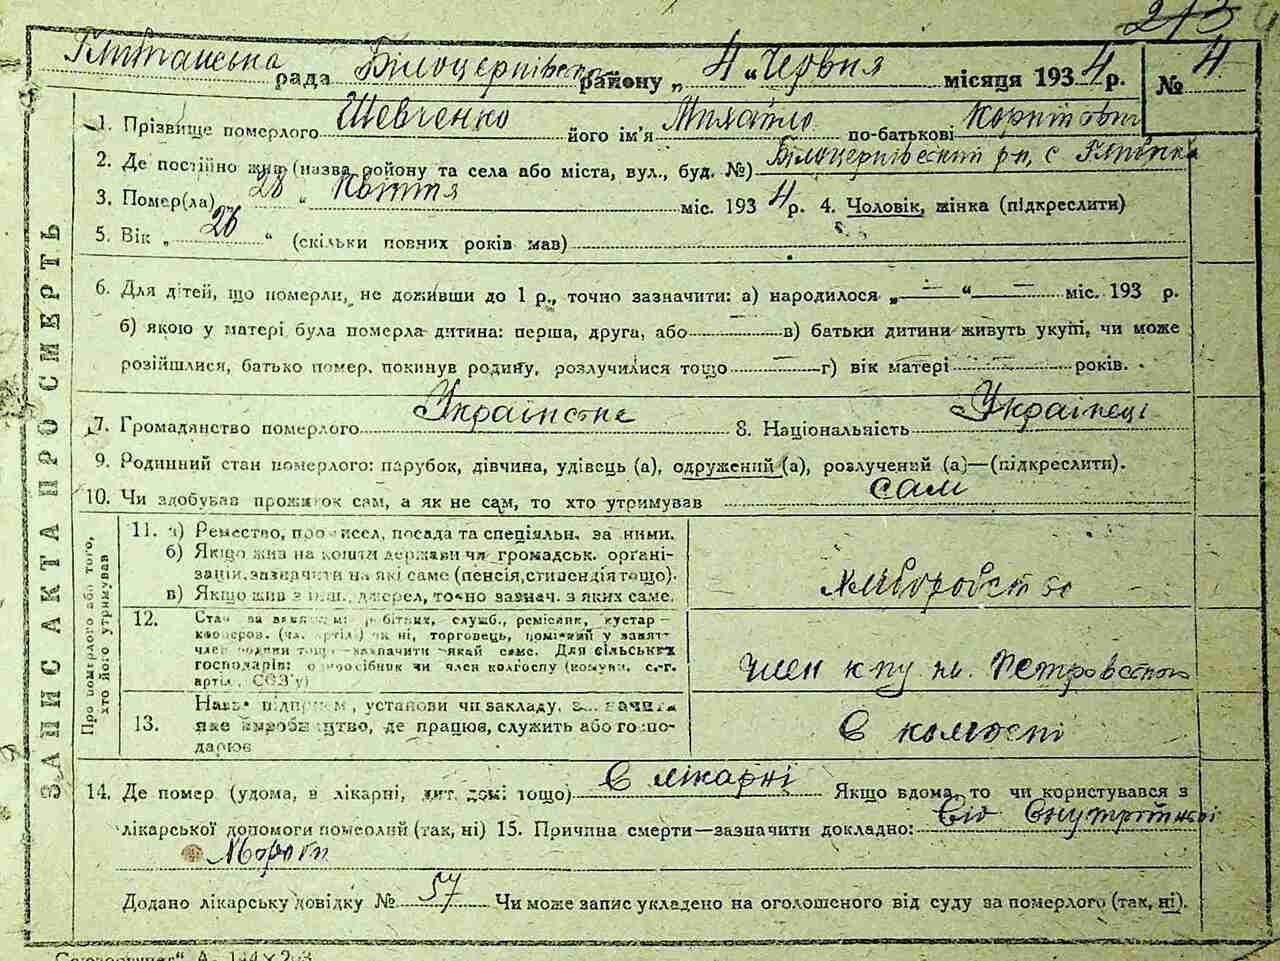 213
рада Білоцерківського району „ 4 " Червня місяця 1934 р. № 4
ЗАПИС АКТА ПРО СМЕРТЬ
1. Прізвище померлого Шевченко його ім'я Михайло по-батькові
2. Де постійно жив (назва району та села або міста, вул., буд. №) Білоцерківський р-н, с
3. Помер(ла) 28 " міс. 1934 р. 4. Чоловік, жінка (підкреслити)
5. Вік „ 26 " (скільки повних років мав)
6. Для дітей, що померли, не доживши до 1 р., точно зазначити: а) народилося „ — " — міс. 193 р.
б) якою у матері була померла дитина: перша, друга, або — в) батьки дитини живуть укупі, чи може
розійшлися, батько помер, покинув родину, розлучилися тощо — г) вік матері — років.
7. Громадянство померлого Українське 8. Національність Українец
9. Родинний стан померлого: парубок, дівчина, удівець (а), одружений (а), розлучений (а)—(підкреслити).
10. Чи здобував прожиток сам, а як не сам, то хто утримував сам
Про померлого або того, хто його утримував
11. а) Ремество, промисел, посада та спеціяльн. за ними.
б) Якщо жив на кошти держави чи громадськ. органі-
зацій, зазначити на які саме (пенсія, стипендія тощо).
в) Якщо жив з інш. джерел, точно зазнач. з яких саме.
Хліборобство
12. Стан за
кооперов. (чл. артілі) чи ні, торговець, поміжний у занят-
член родини тощо—зазначити—який саме. Для сільських
господарів: одноосібник чи член колгоспу (комуни, с.-г.
артіл., СОЗ'у)
член к-пу ім. Петровского
13. Назва підприєм., установи чи закладу, зазначити
яке виробництво, де працює, служить або госпо-
дарює
в колгоспі
14. Де помер (удома, в лікарні, дит. домі тощо) в лікарні Якщо вдома, то чи користувався з
лікарської допомоги помеолий (так, ні) 15. Причина смерти—зазначити докладно: Від
Додано лікарську довідку № 57 Чи може запис укладено на оголошеного від суду за померлого (так, ні).